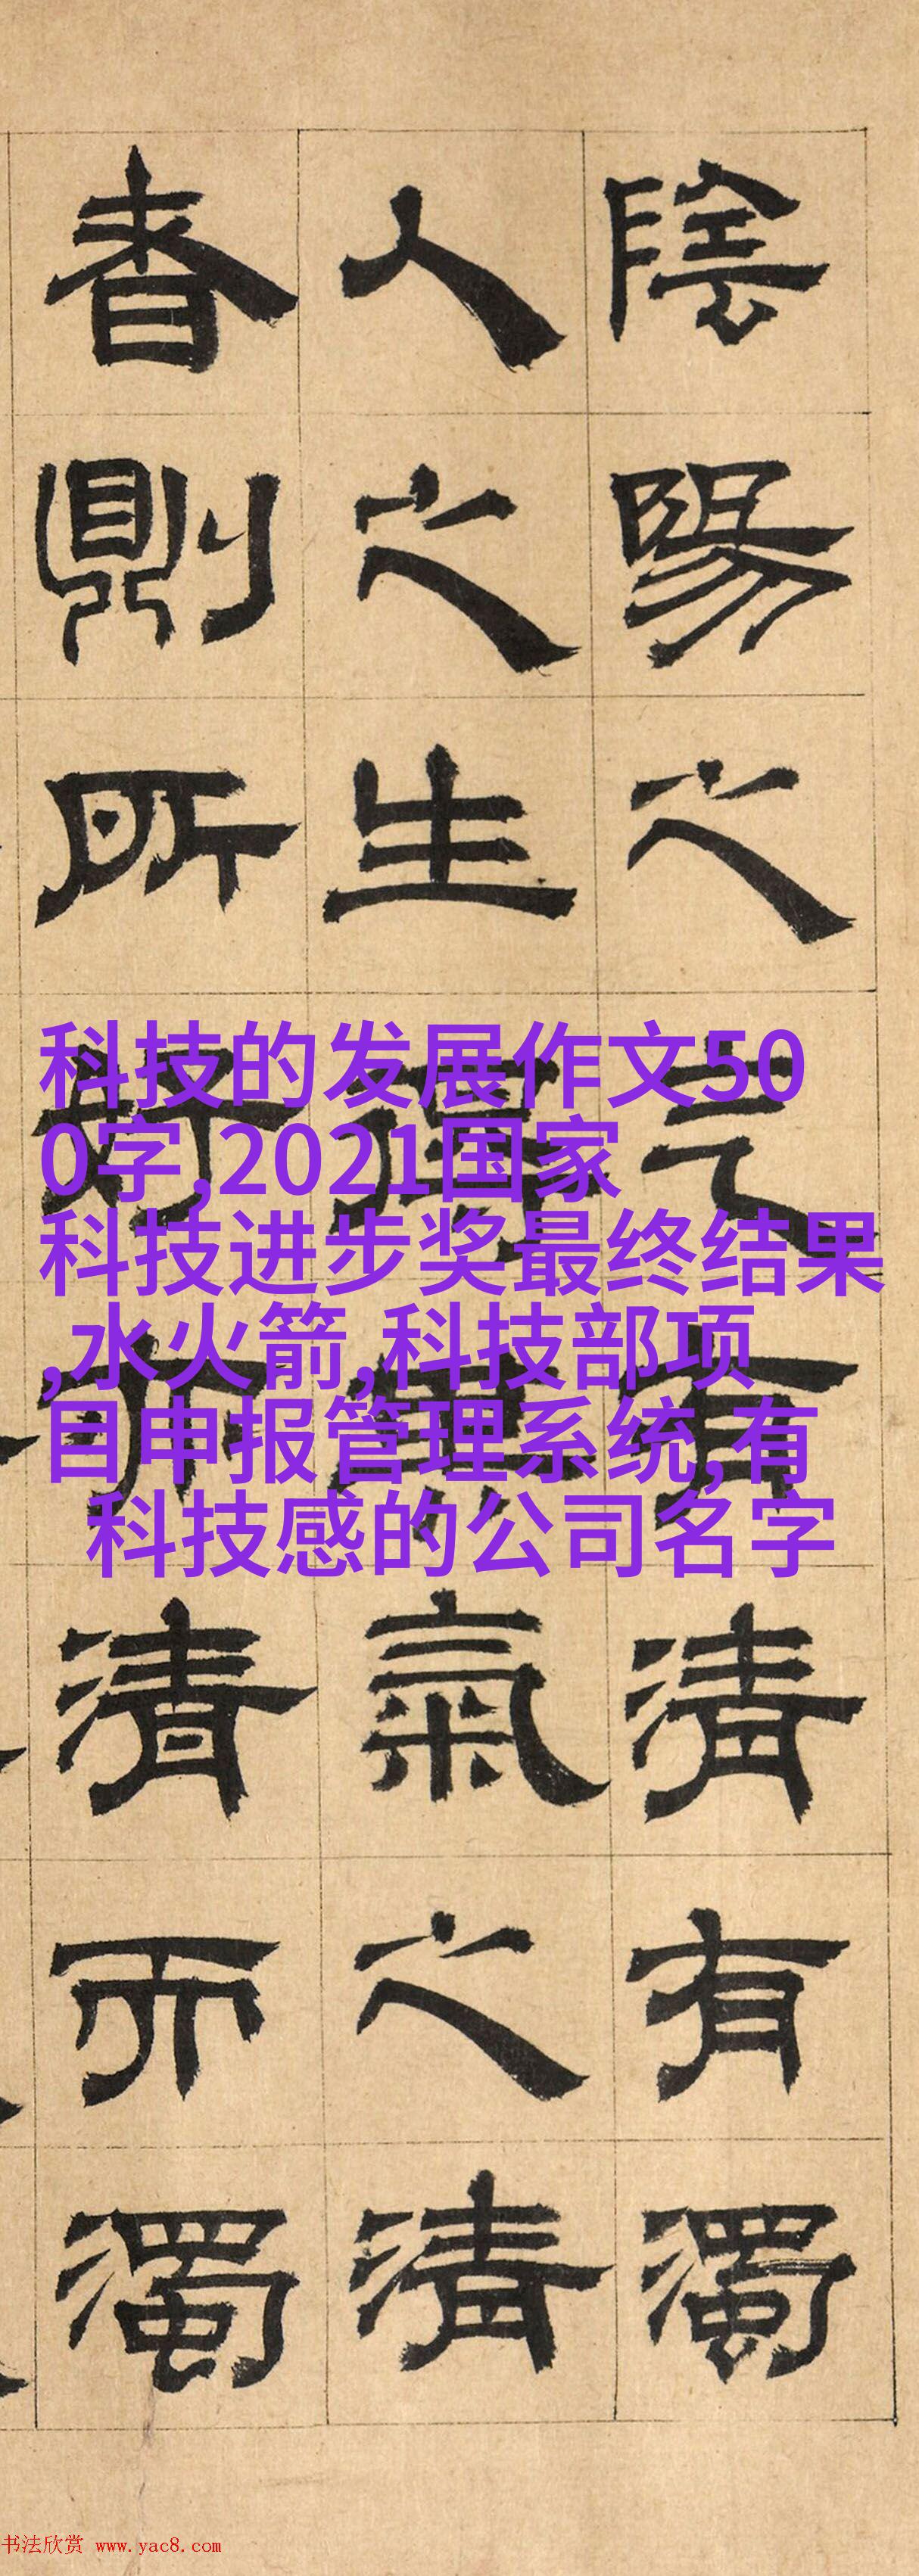 陰陽之气有清有濁
人之生得其氣之清
者則所好亦清而濁
科技的发展作文50
0字,2021国家
科技进步奖最终结果
,水火箭,科技部项
目申报管理系统,有
科技感的公司名字
书法欣赏 www.yac8.com